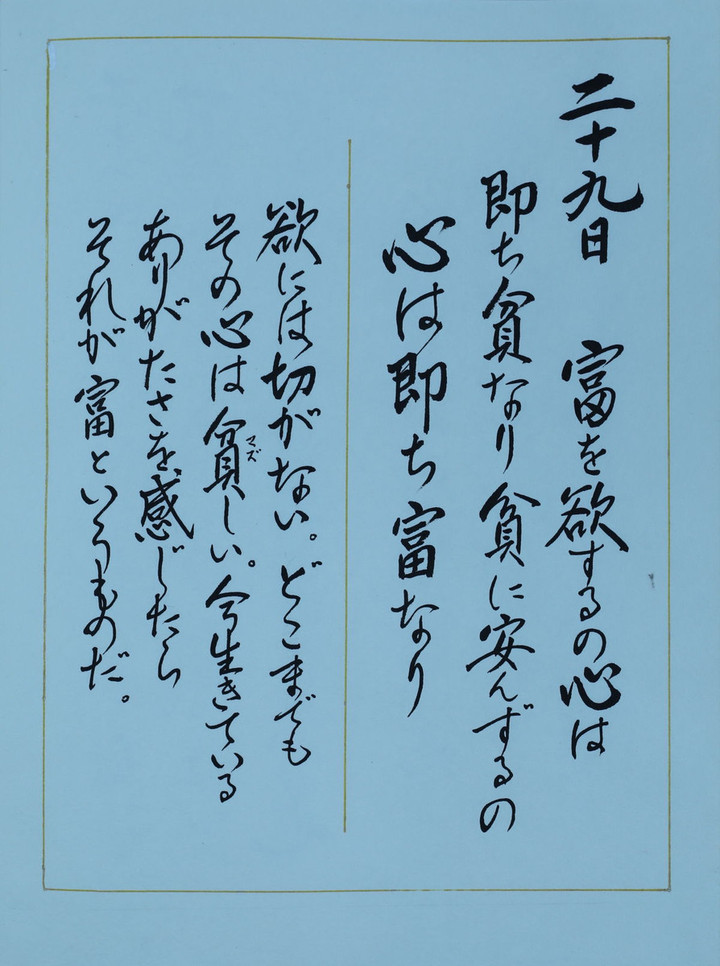 二十九日　富を欲するの心は
即ち貧なり貧に安んずるの
心は即ち富なり
欲には切がない。どこまでも
その心は貧しい。今生きている
マズ
ありがたさを感じたら
それが富というものだ。